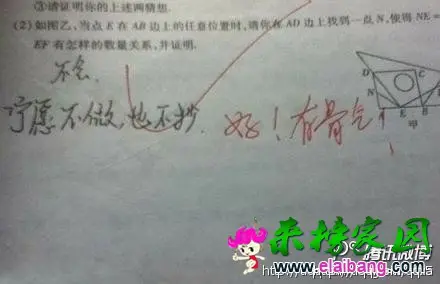 ③请证明你的上述两猜想.
(2)如图乙,当点 E 在 AB 边上的任意位置时,请你在 AD 边上找到一点 N,使得 NE=
EF 有怎样的数量关系,并证明.
不会,
宁愿不做,也不抄. 好!有骨气!
D C
N
A E B
甲
来榜家园
腾讯微博
www.elaibang.com